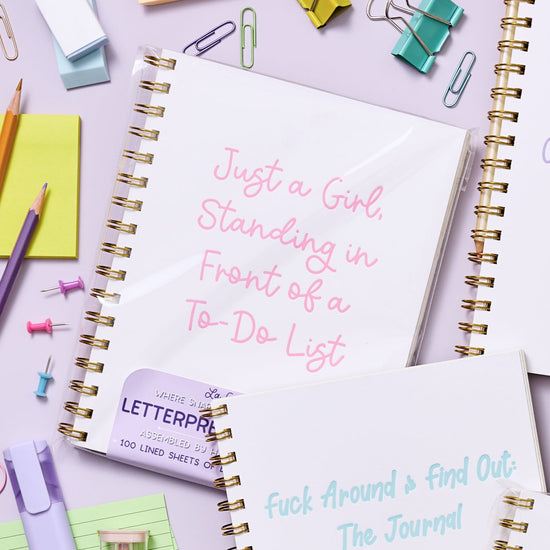 Just a Girl,
Standing in
Front of a
To-Do List
WHERE
LETTERPRE
ASSEMBLED BY
100 LINED SHEETS OF
Fuck Around & Find Out:
The Journal